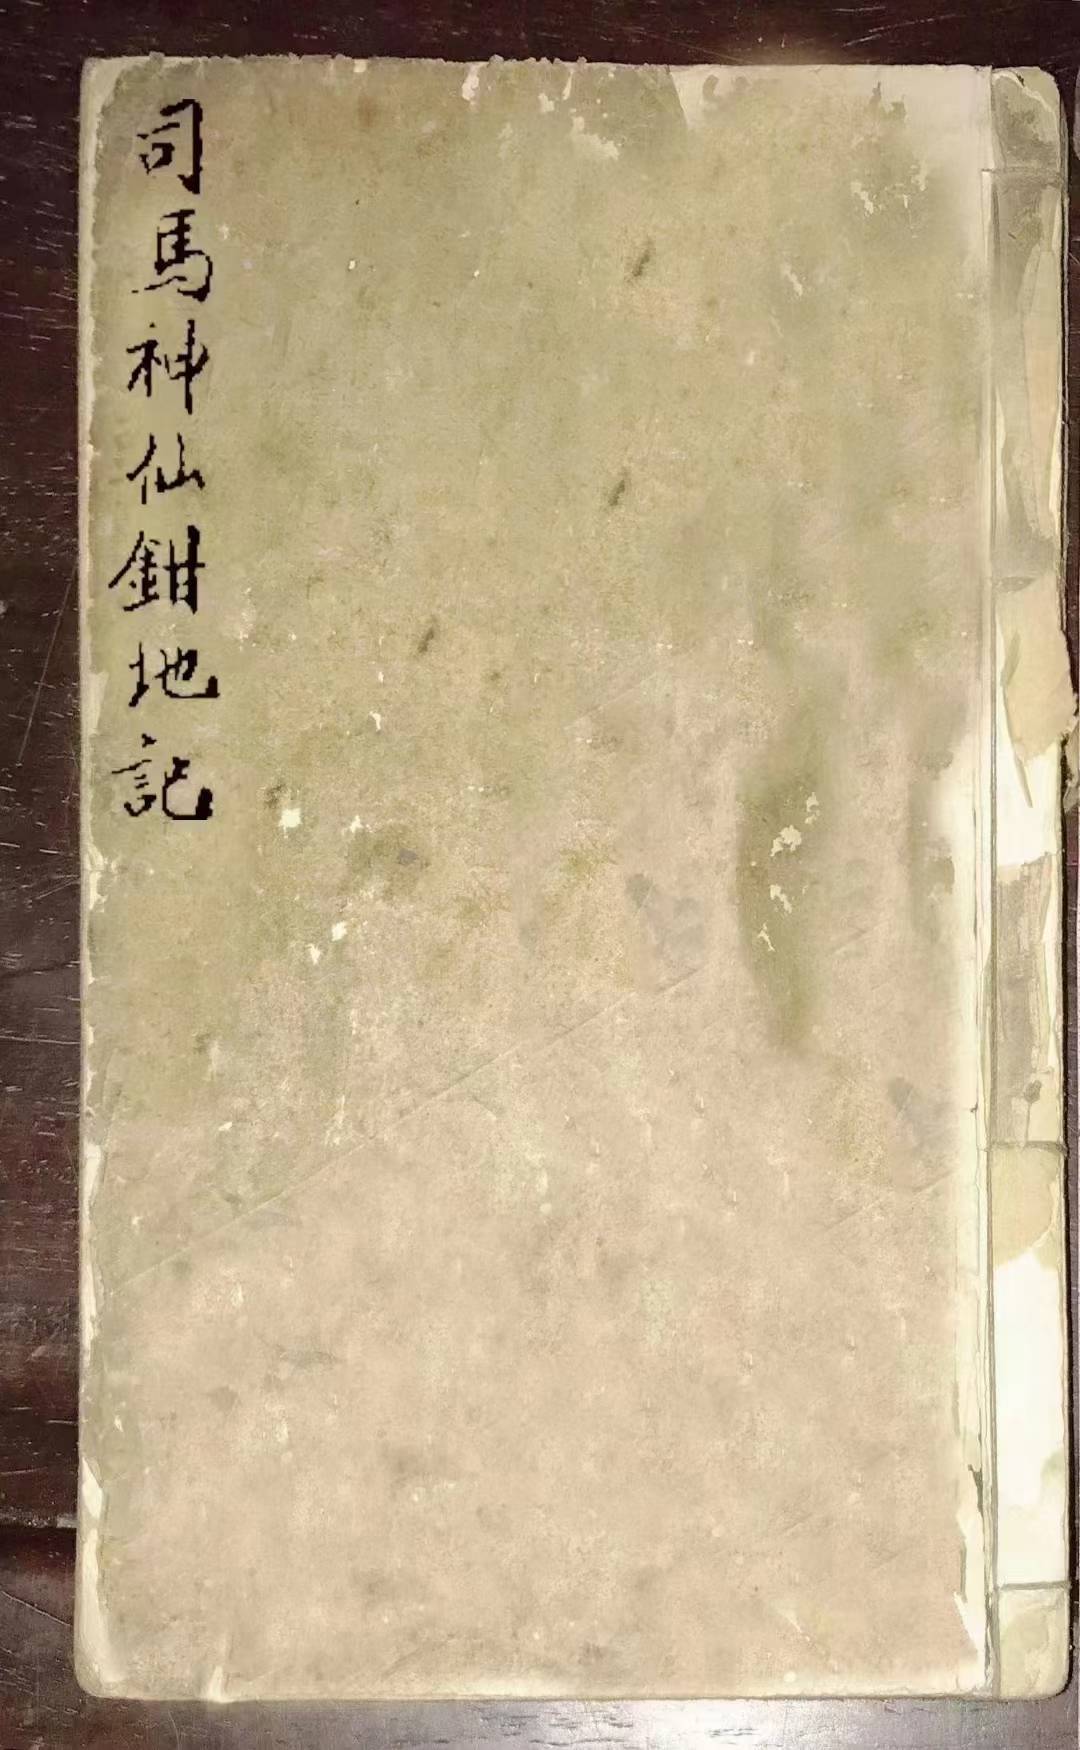 司馬神仙鉗地記